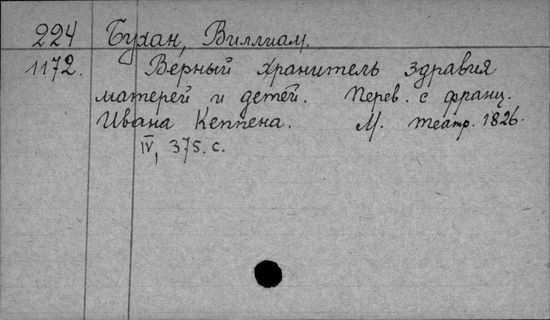 224 Бухан, Виллиам.
1172. Верный хранитель здравия
матерей и детей. Перев. с франц.
Ивана Кеппена. М. театр. 1826.
IV, 375. с.